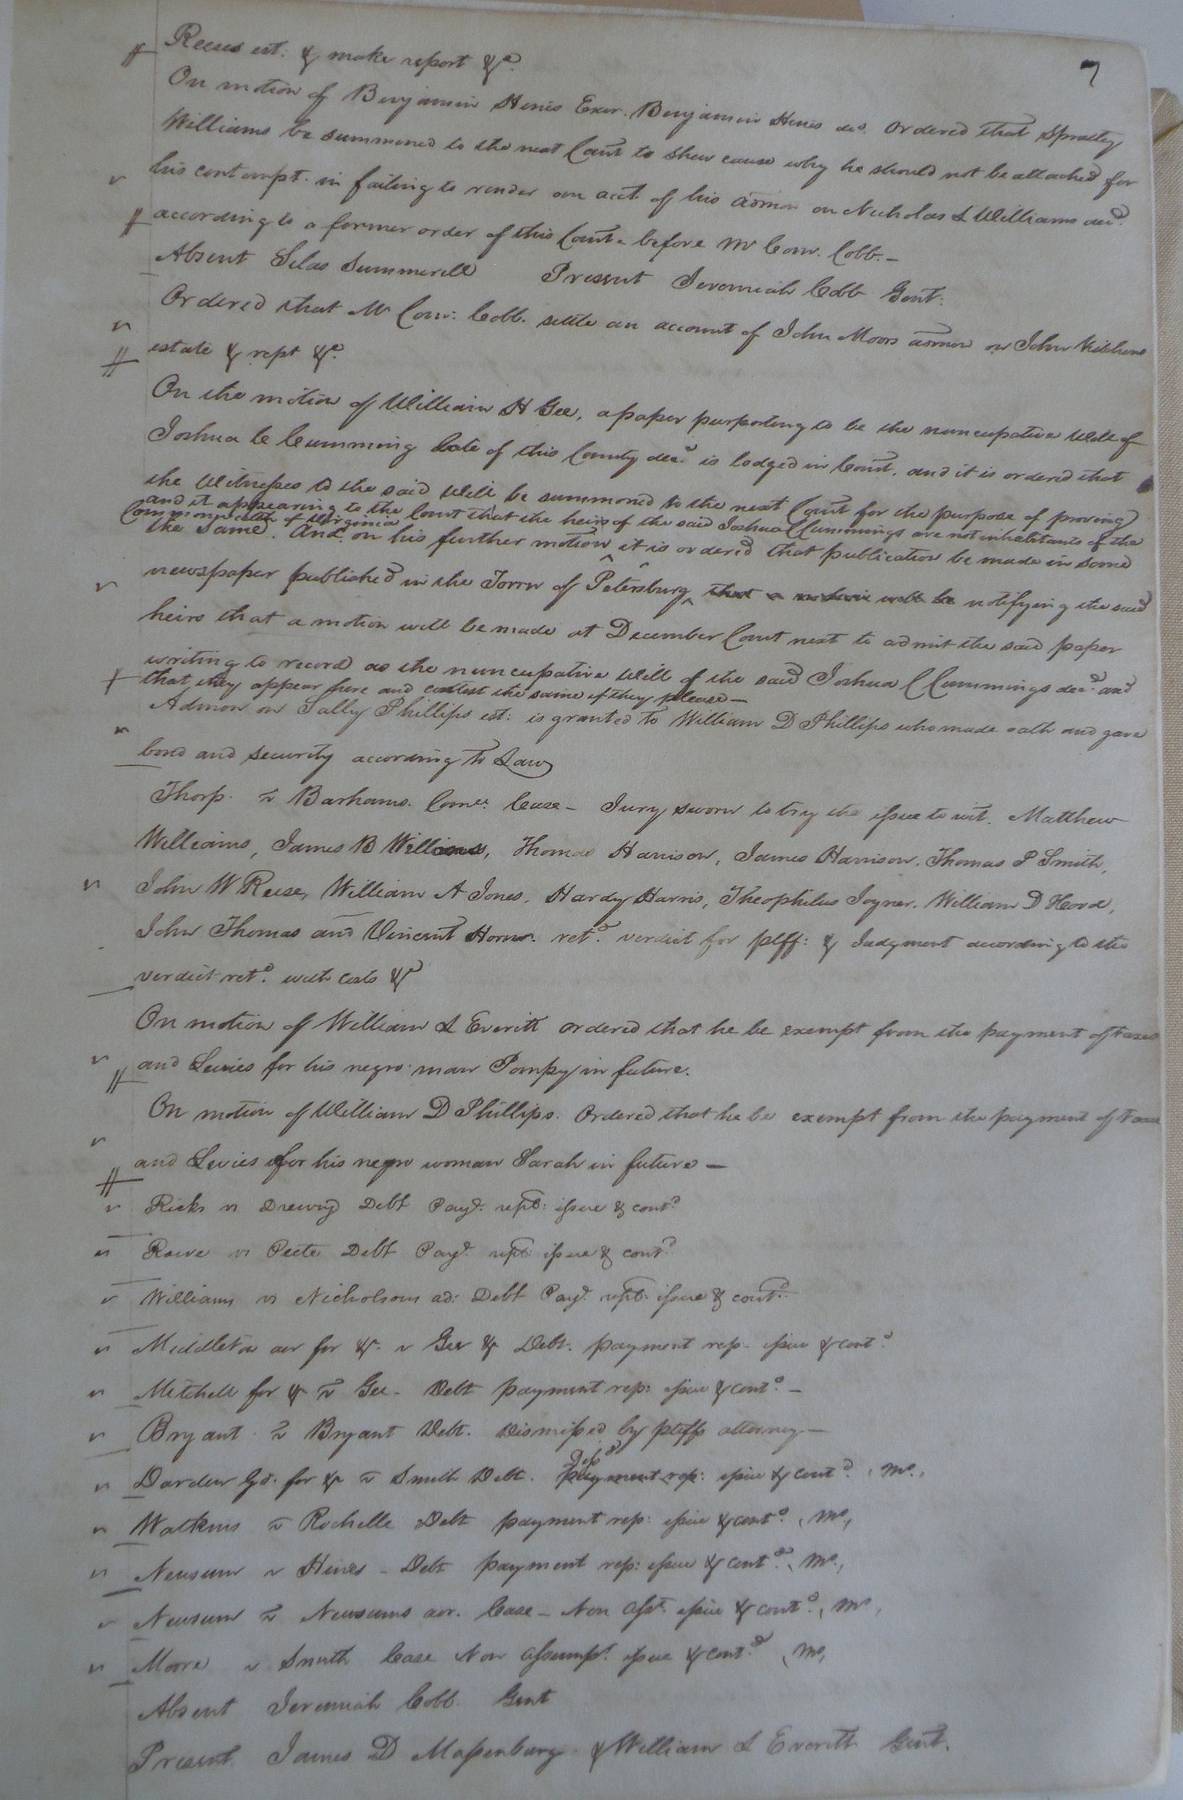 7
Reeses est: & make report &c.
On motion of Benjamin Hines Exor. Benjamin Hines decd. ordered that Spratley
Williams be summoned to the next Court to shew cause why he should not be attached for
his contempt in failing to render an acct of his admon on Nicholas L Williams decd.
according to a former order of this Court before Mr Comr. Cobb. –
Absent Silas Summerell Present Jeremiah Cobb Gent:
Ordered that Mr Comr. Cobb. settle an account of John Moors admon on John
estate & rept &c.
On the motion of William H Gee, a paper purporting to be the nuncupative Will of
Joshua C Cumming late of this County decd. is lodged in Court, and it is ordered that
the Witnesses to the said Will be summoned to the next Court for the purpose of proving
and it appearing to the Court that the heirs of the said Joshua C Cummings are not inhabitants of the
Commonwealth of Virginia
the same. And on his further motion it is ordered that publication be made in some
newspaper published in the Town of Petersburg that a motion will be notifying the said
heirs that a motion will be made at December Court next to admit the said paper
writing to record as the nuncupative Will of the said Joshua C Cummings decd. and
that they appear here and contest the same if they please –
Admon on Sally Phillips est: is granted to William D Phillips who made oath and gave
bond and security according to Law
Thorp. vs Barhams. Comee. Case – Jury sworn to try the issue to wit. Matthew
Williams, James B Williams, Thomas Harrison, James Harrison, Thomas P Smith,
John W Reese, William A Jones, Hardy Harris, Theophilus Joyner, William D Hood,
John Thomas and Vincent retd. verdict for plff: & Judgment according to the
verdict retd. with costs &c
On motion of William L Everitt ordered that he be exempt from the payment of taxes
and Levies for his negro man Pompy in future.
On motion of William D Phillips. Ordered that he be exempt from the payment of taxes
and Levies for his negro woman Sarah in future –
Ricks vs Drewry Debt Payt. rept: issue & contd
Rowe vs Peete Debt Payt. rept: issue & contd
Williams vs Nicholsons ad: Debt Payt. rept: issue & contd.
Middleton for &c. vs Gee &c Debt. payment rep. issue & contd.
Mitchell for &c vs Gee – Debt payment rep: issue & contd. –
Bryant vs Bryant Debt. Dismissed by plffs attorney –
Darden Gd. for &c vs Smith Debt. payment rep: issue & contd. , Mo.,
Watkins vs Rochelle Debt payment rep: issue & contd. , Mo,
Newsum vs Hines – Debt payment rep: issue & contd. , Mo.,
Newsum vs Newsums Case – Non asst. issue & contd. , Mo,
Moore vs Smith Case Non assumpt. issue & contd. , Mo,
Absent Jeremiah Cobb. Gent
Present James D Massenburg & William L Everitt Gent.